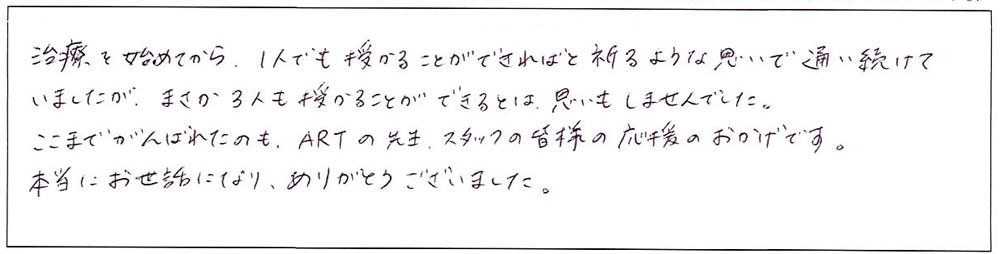 治療を始めてから、1人でも授かることができればと祈るような思いで通い続けて
いましたが、まさか3人も授かることができるとは、思いもしませんでした。
ここまでがんばれたのも、ARTの先生、スタッフの皆様の応援のおかげです。
本当にお世話になり、ありがとうございました。